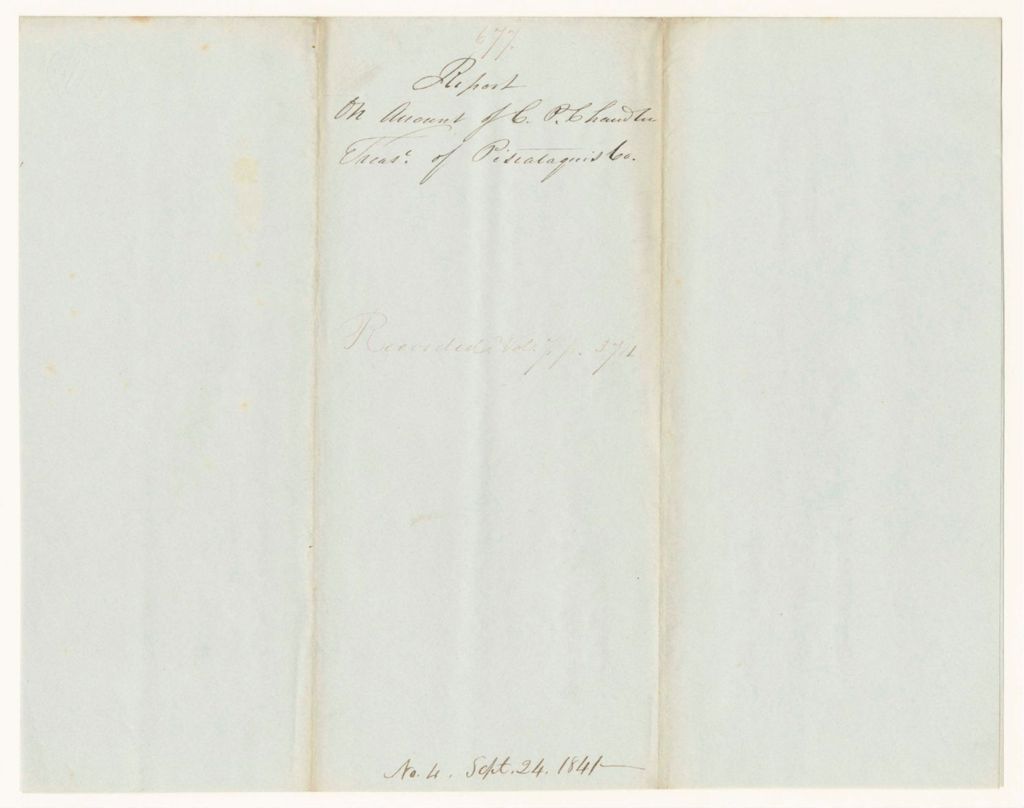 677
Report
On Account of C. P. Chandler
Treasr. of Piscataquis Co.
Recorded Vol. 7, p. 374
No. 4. Sept. 24. 1841